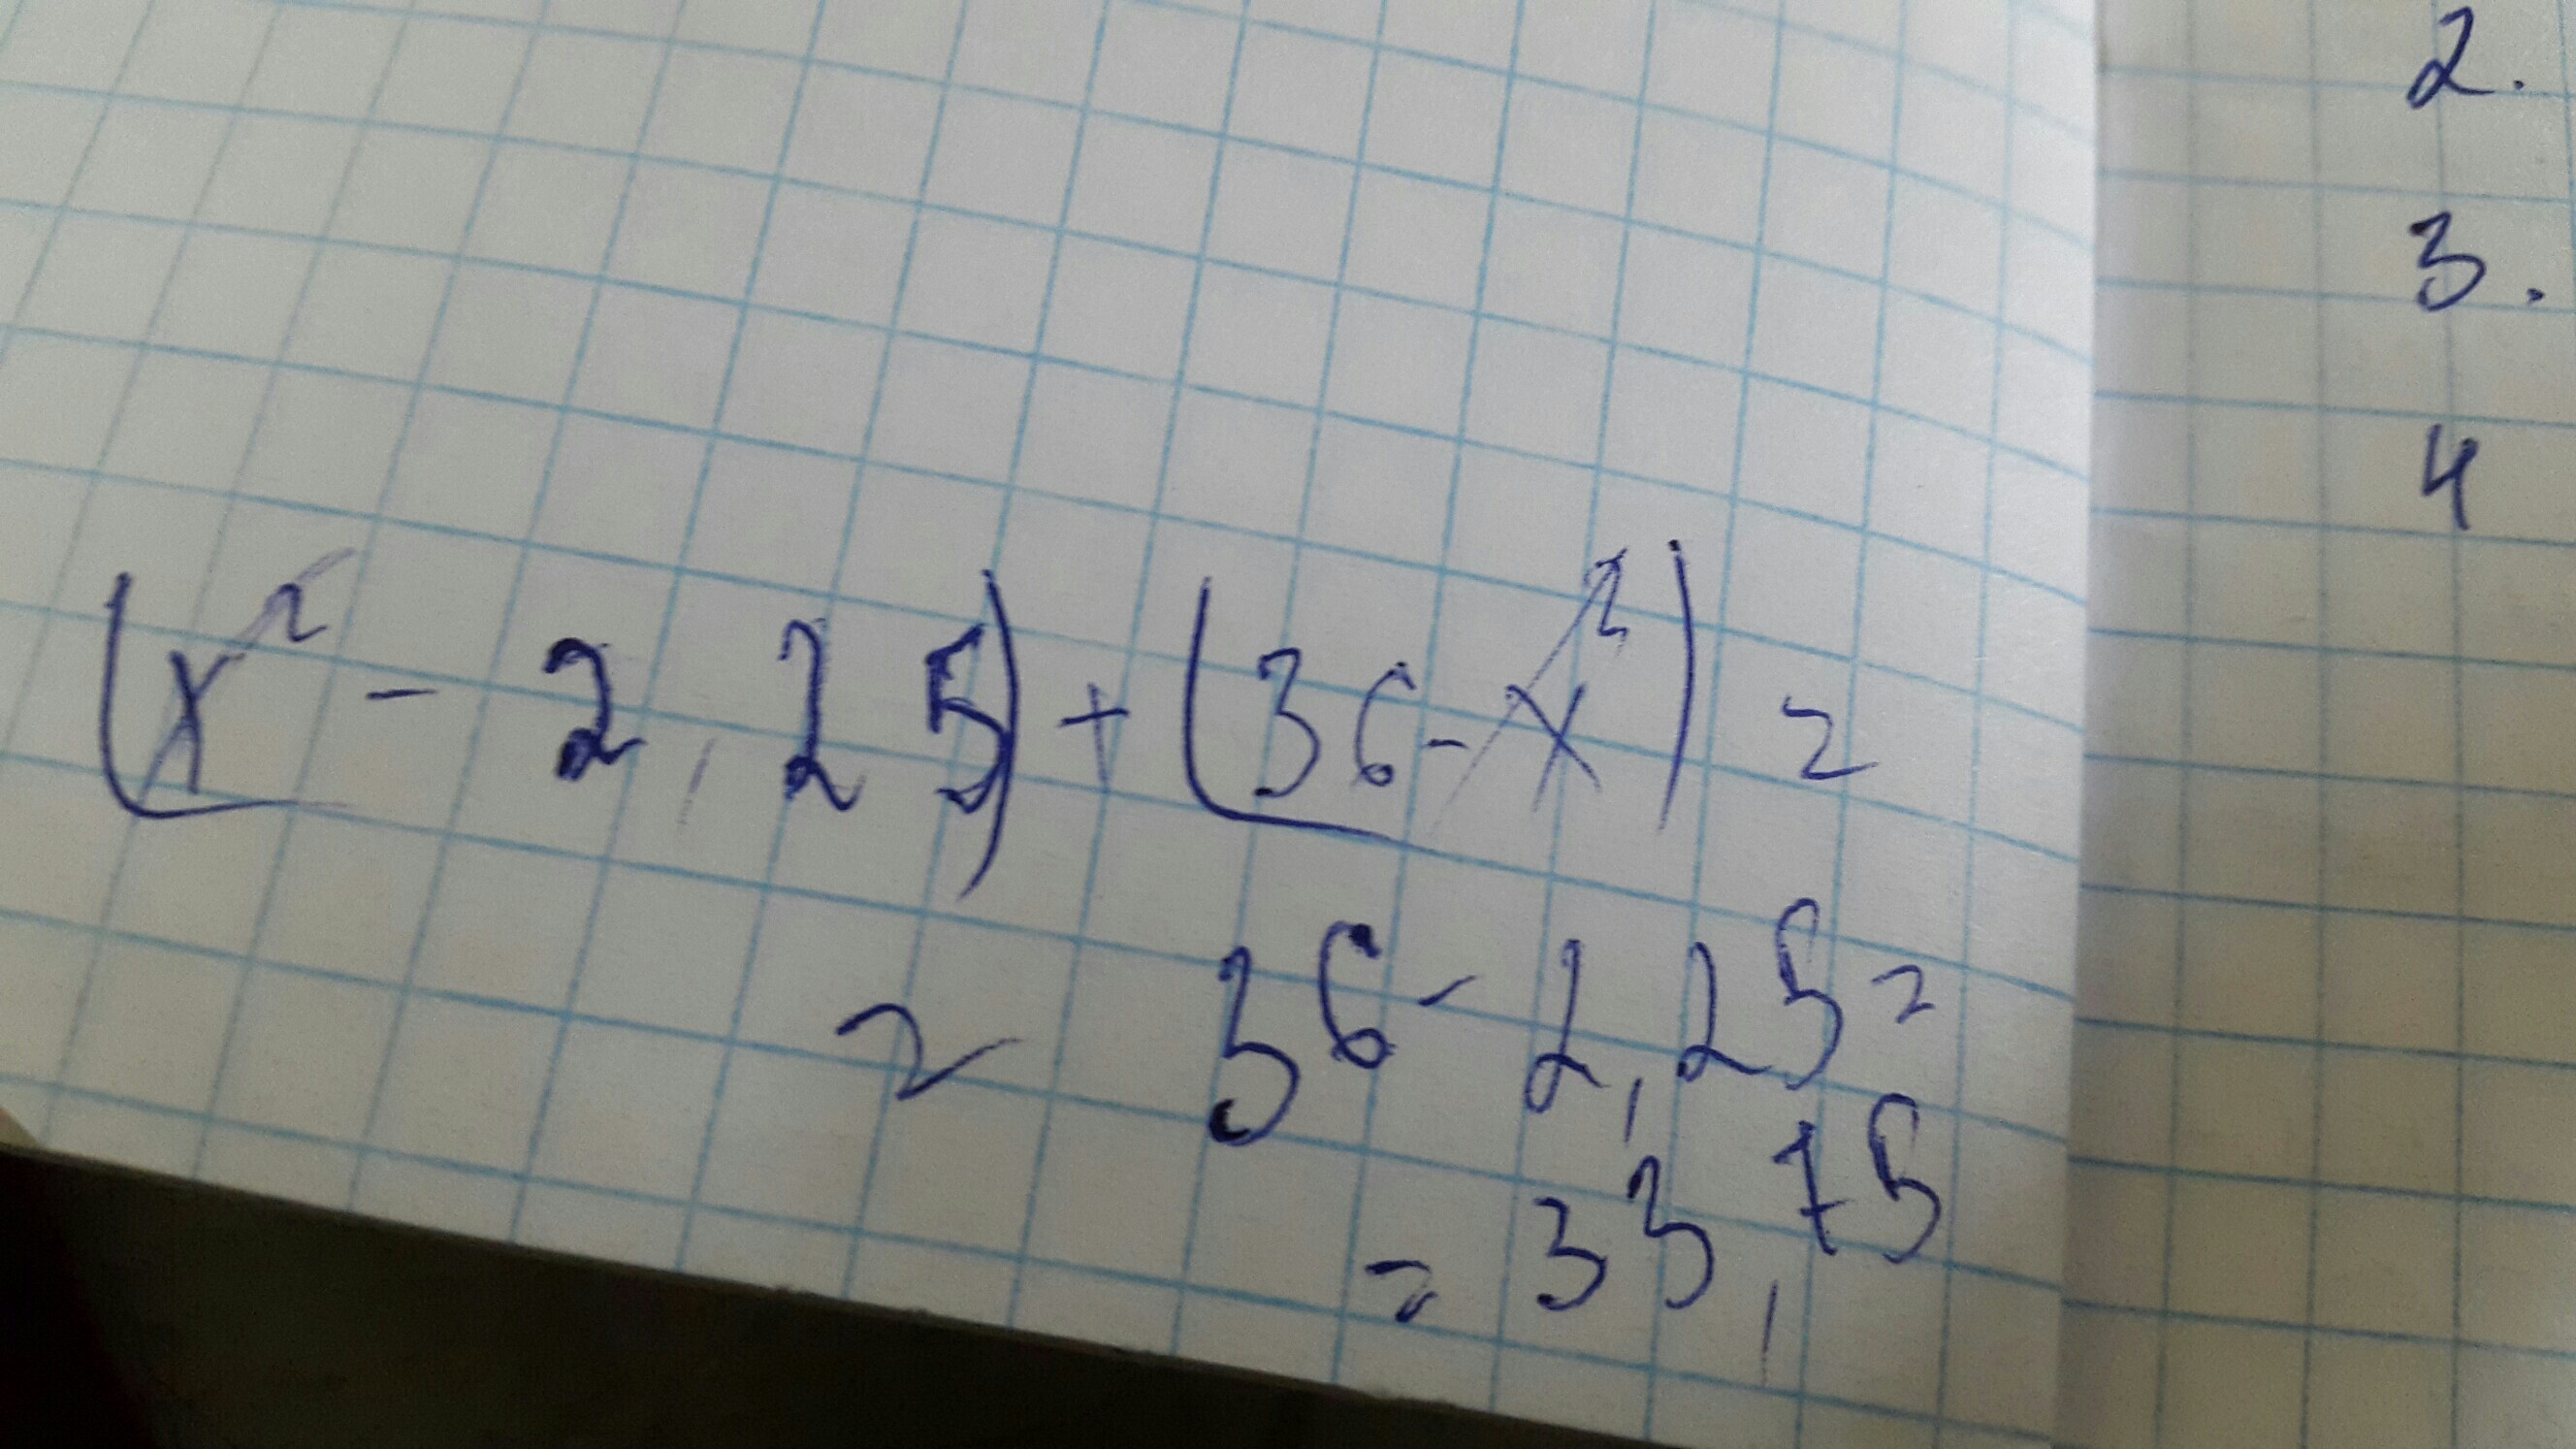 2.
3.
4
(x² - 2,25) + (36 - x²) =
= 36 - 2,25 =
= 33,75